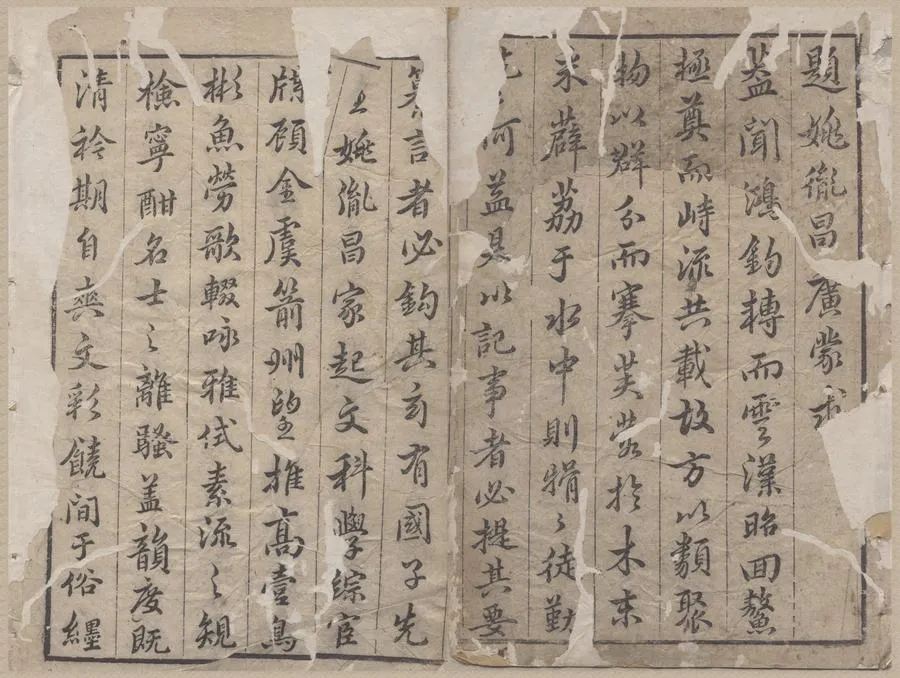 題姚胤昌廣蒙求
蓋聞鴻鈞轉而雲漢昭回鰲
極奠而峙流共載故方以類聚
物以群分而搴芙蓉於木末
采薜荔于水中則搰〻徒勤
何益是以記事者必提其要
纂言者必鈎其玄有國子先
生姚胤昌家起文科學綜官
牖顧金虞箭州望推高壹鳥
彬魚勞歌輟咏雅素流之規
檢寧酣名士之離騷蓋韻度既
清衿期自爽文彩饒間于俗纏